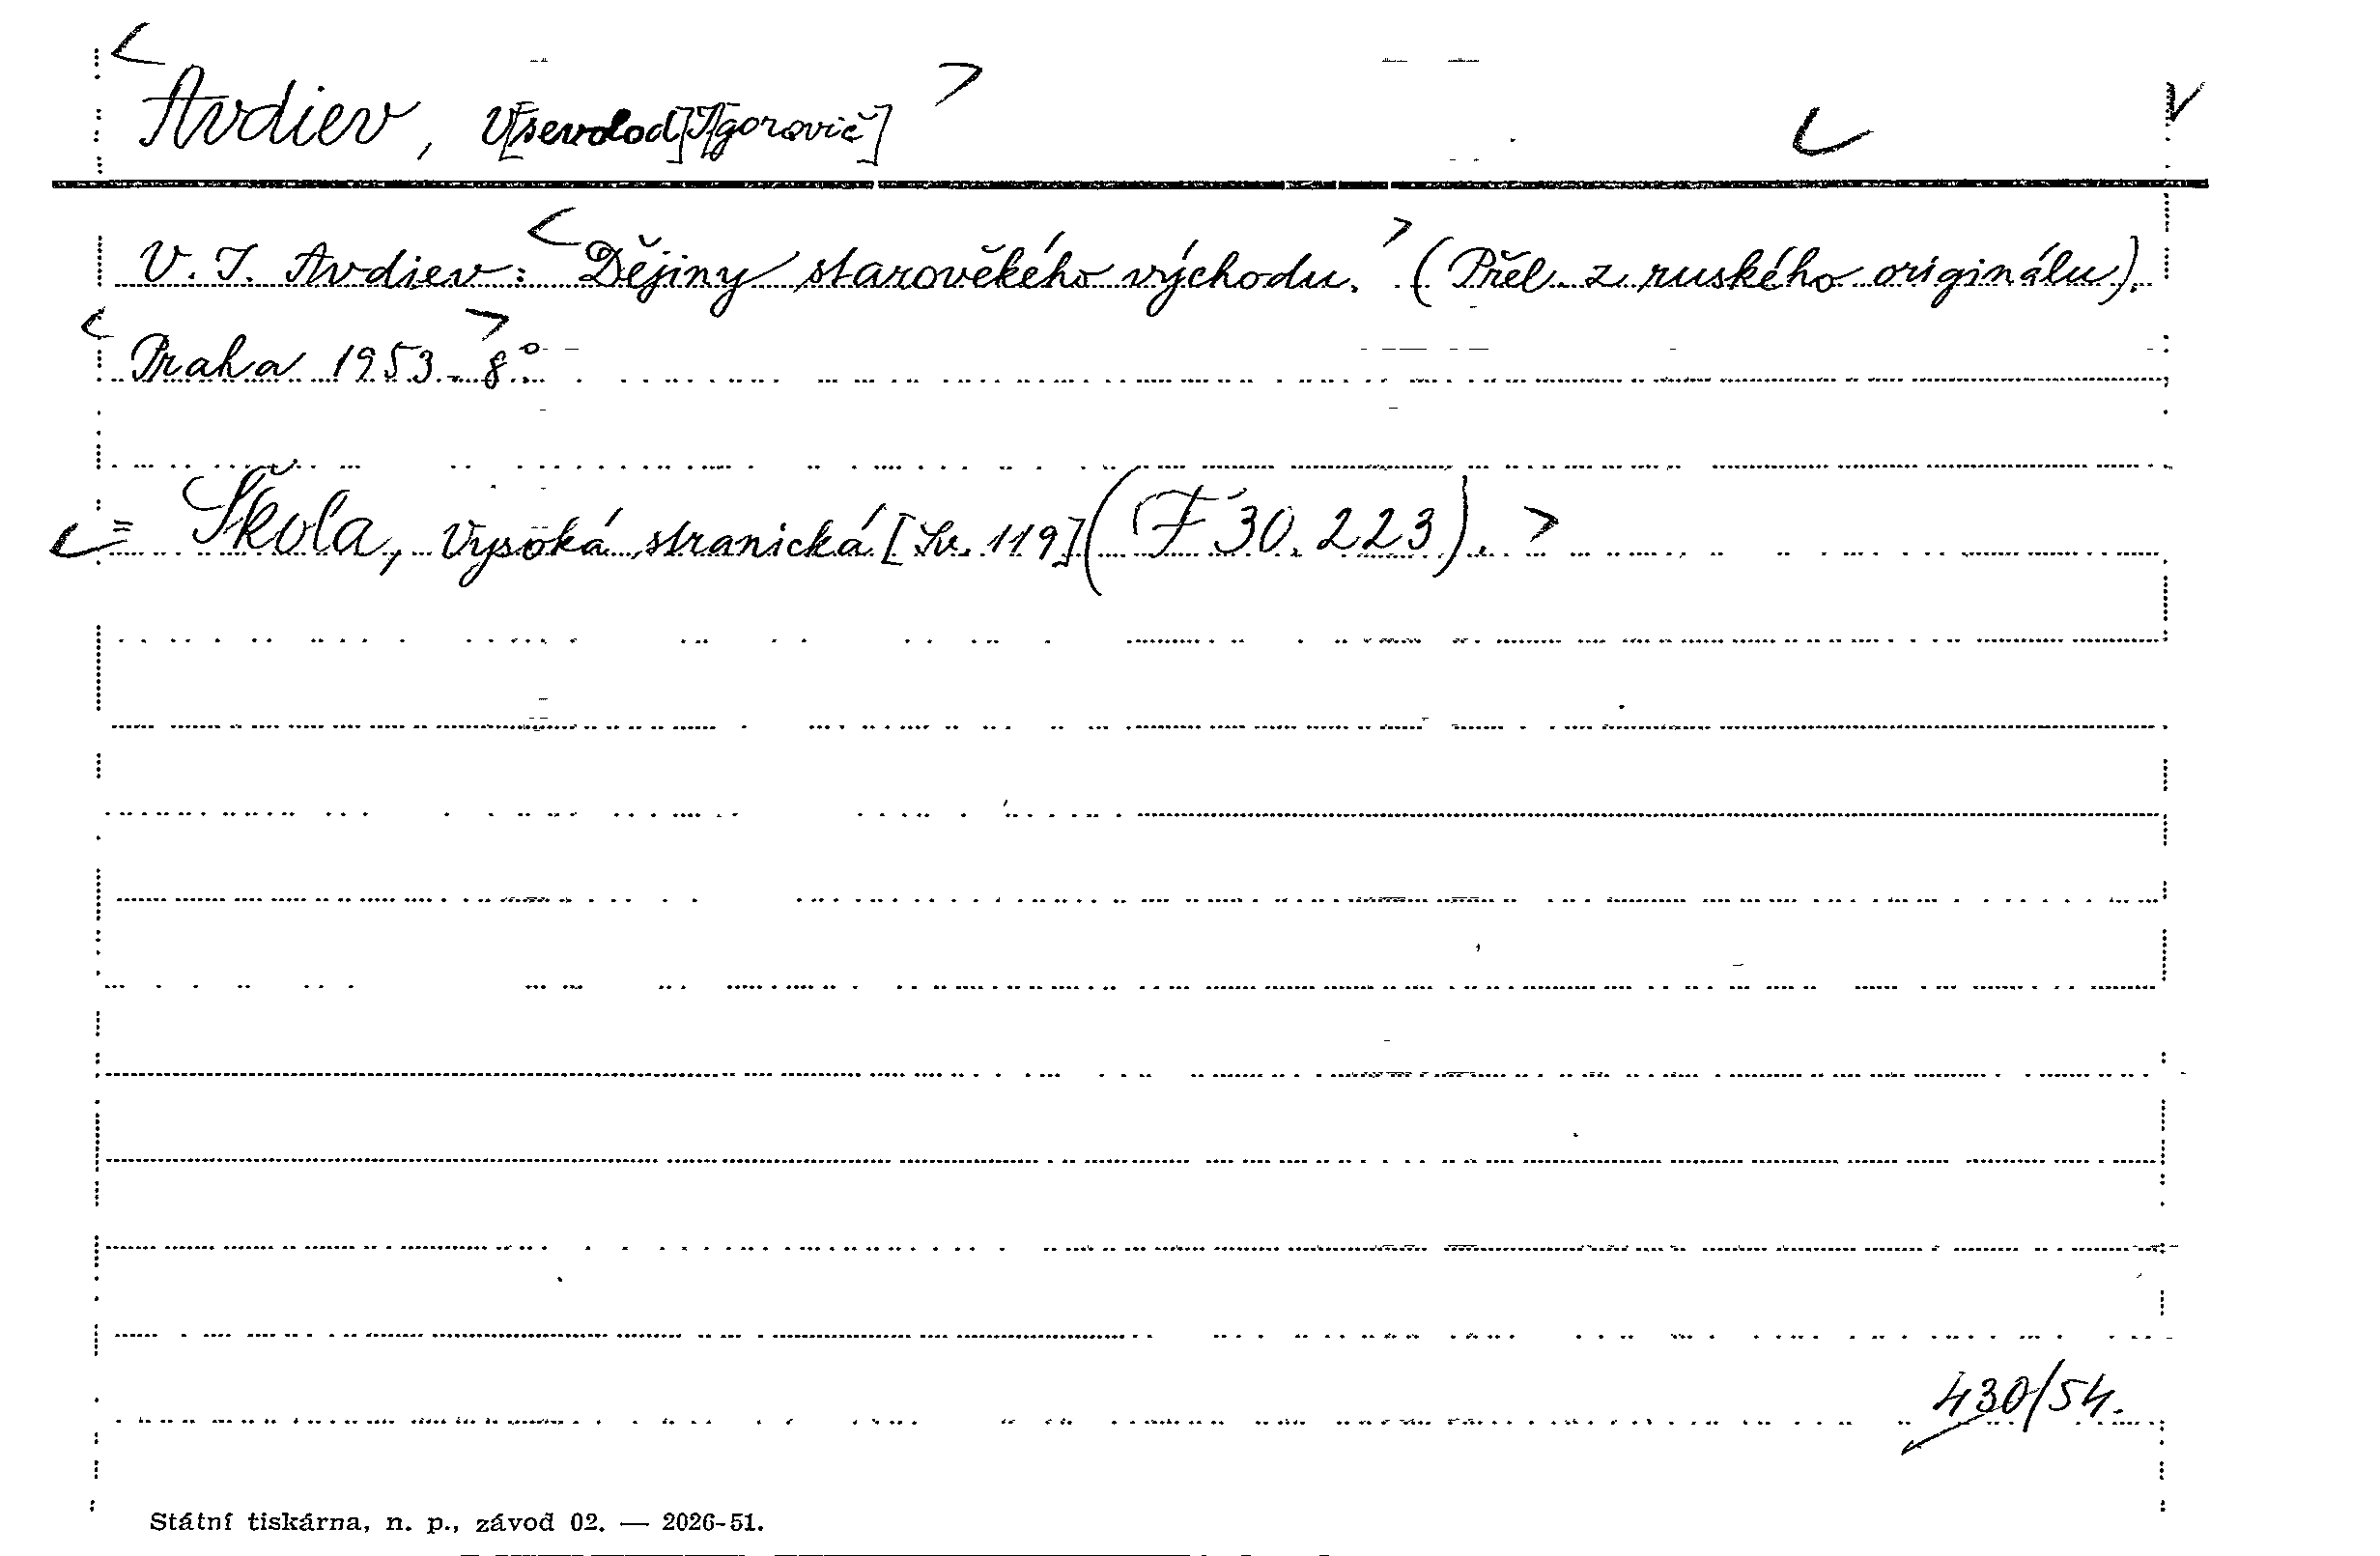 Avdiev, V[sevolod] I[gorovič]
V. I. Avdiev: Dějiny starověkého východu. (Přel. z ruského originálu).
Praha 1953. 8°.
= Škola, Vysoká stranická [Sv. 119] (F 30.223).
430/54.
Státní tiskárna, n. p., závod 02. — 2026-51.